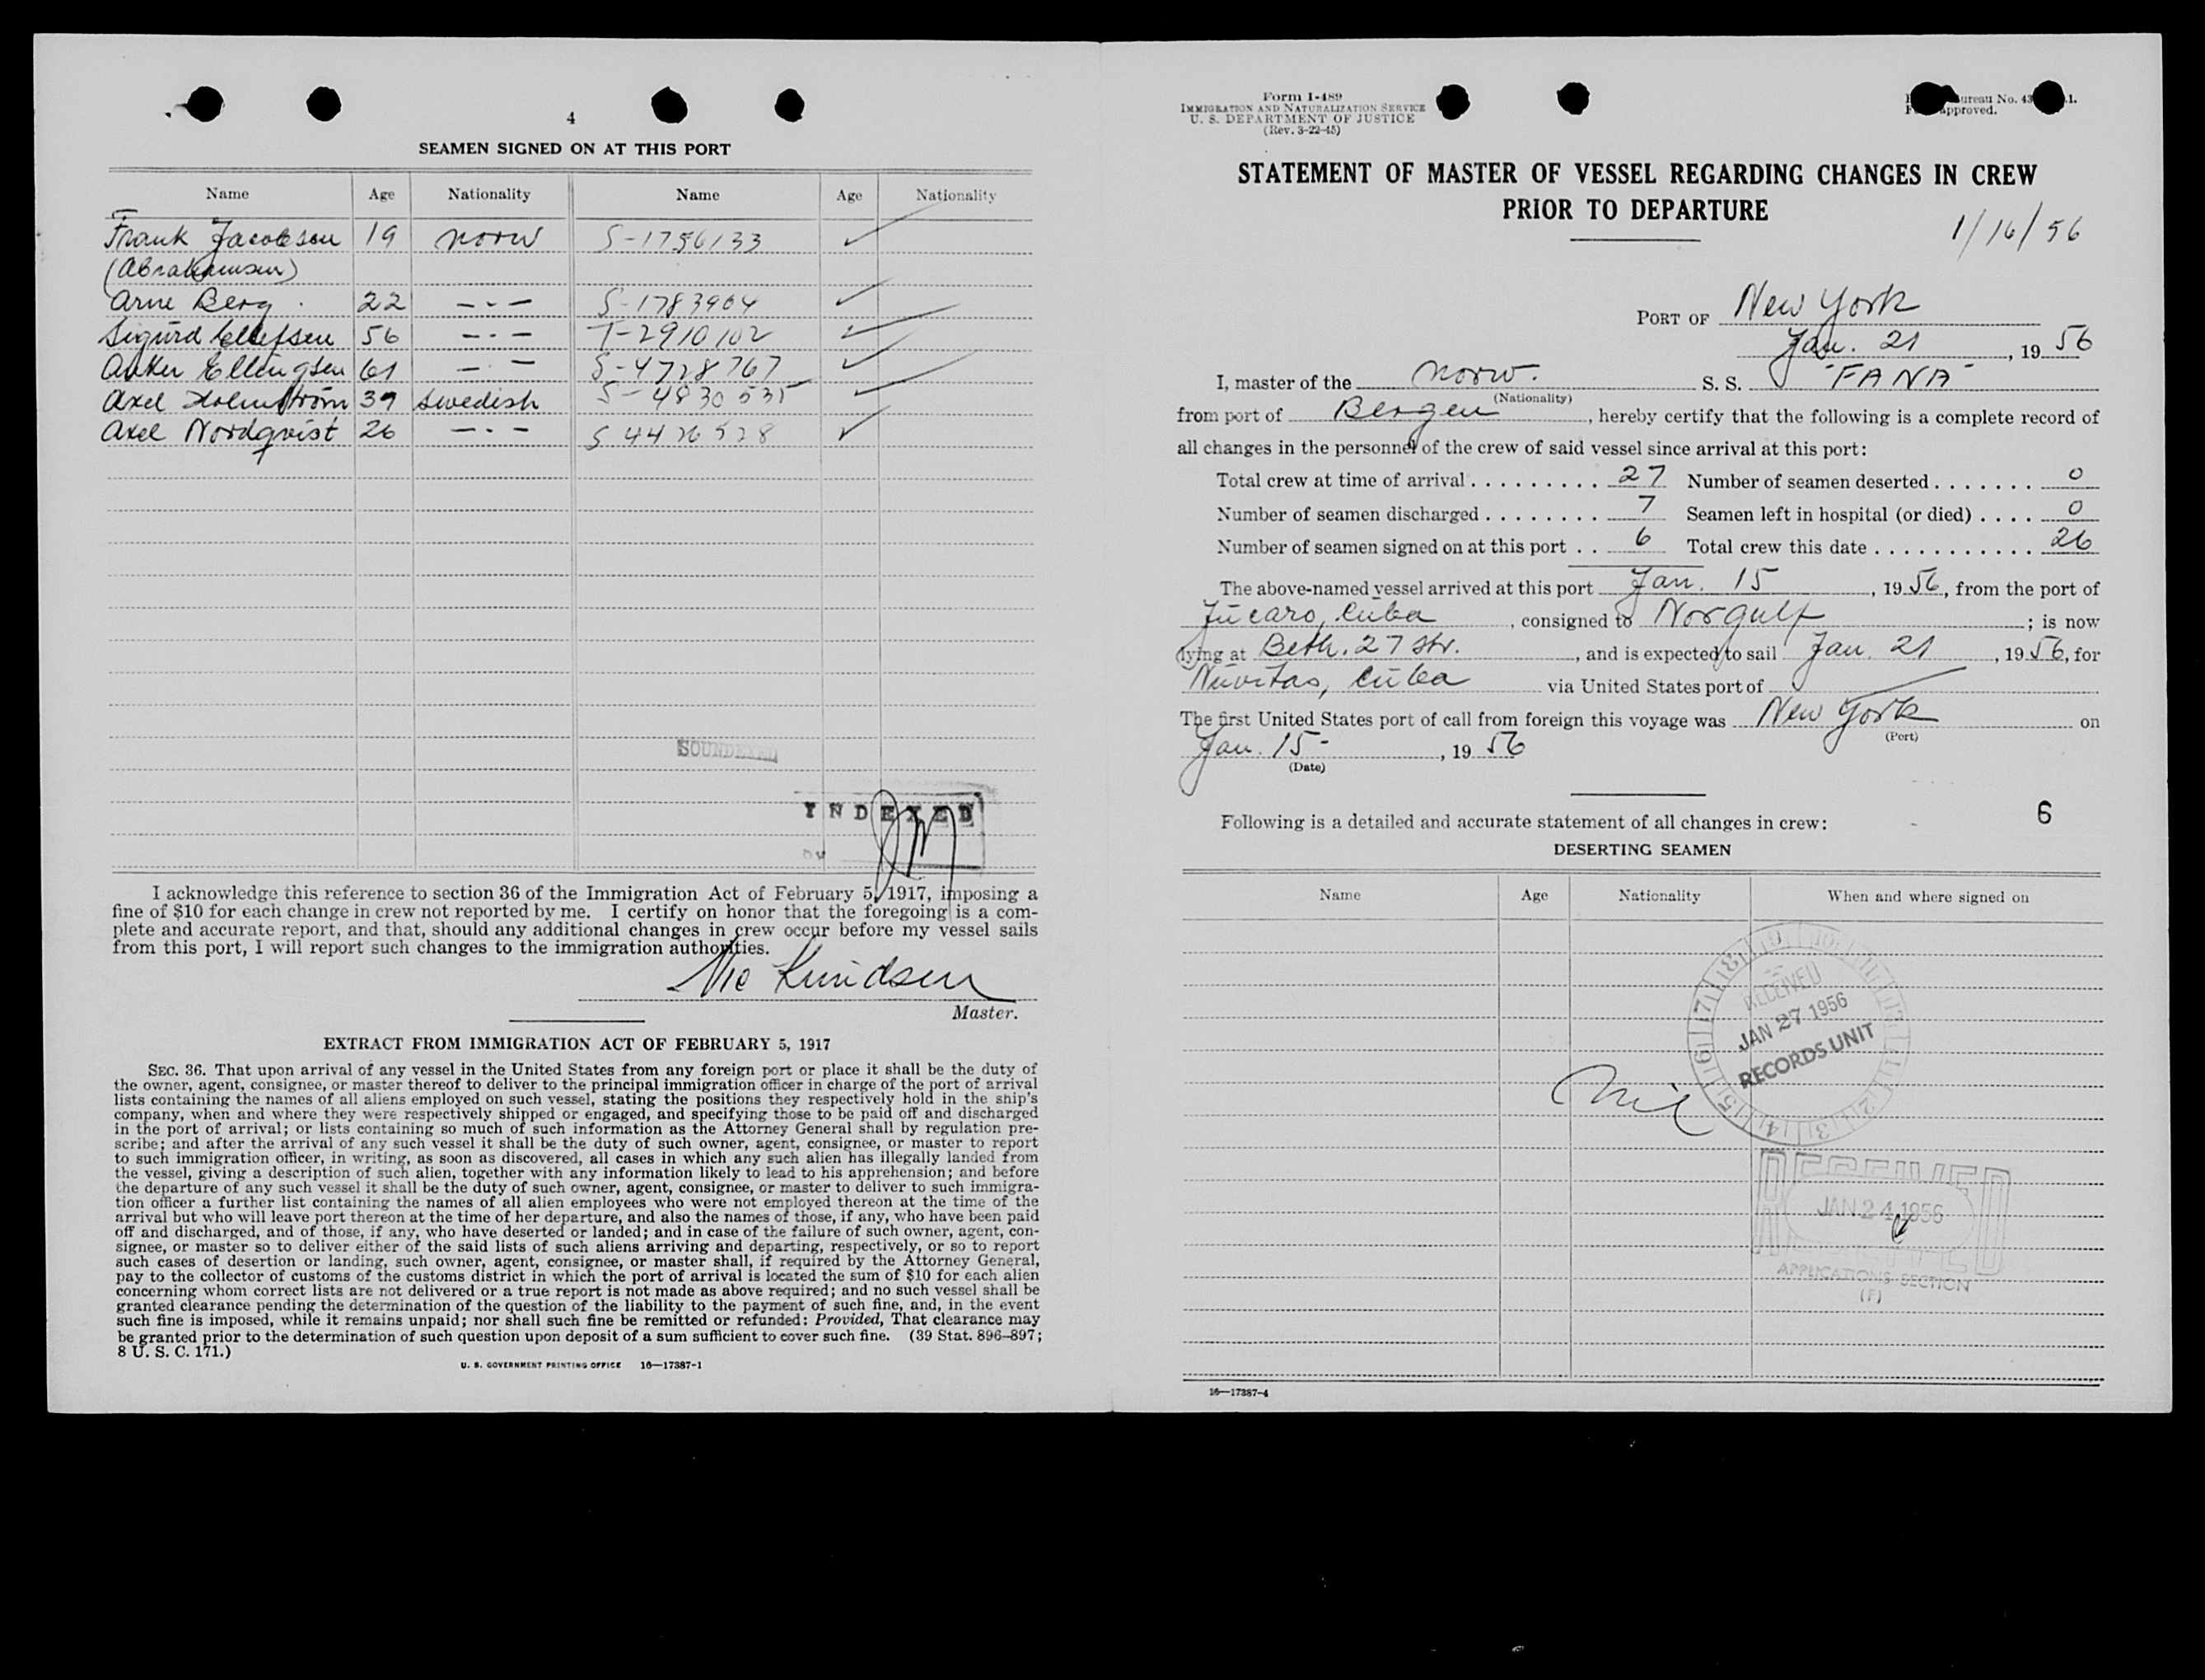 4
SEAMEN SIGNED ON AT THIS PORT
Name Age Nationality Name Age Nationality
Frank Jacobsen 19 norw S-1756133
(Abrahamsen)
Arne Berg 22 -- - S-1783904
Sigurd Ellefsen 56 -- - T-2910102
Anker Ellingsen 61 -- - S-4728767
Axel Holmström 39 Swedish S-4830535
Axel Nordqvist 26 -- - S 4426528
SOUNDEXED
INDEXED
BY
I acknowledge this reference to section 36 of the Immigration Act of February 5, 1917, imposing a
fine of $10 for each change in crew not reported by me. I certify on honor that the foregoing is a com-
plete and accurate report, and that, should any additional changes in crew occur before my vessel sails
from this port, I will report such changes to the immigration authorities.
Knudsen
Master.
EXTRACT FROM IMMIGRATION ACT OF FEBRUARY 5, 1917
SEC. 36. That upon arrival of any vessel in the United States from any foreign port or place it shall be the duty of
the owner, agent, consignee, or master thereof to deliver to the principal immigration officer in charge of the port of arrival
lists containing the names of all aliens employed on such vessel, stating the positions they respectively hold in the ship's
company, when and where they were respectively shipped or engaged, and specifying those to be paid off and discharged
in the port of arrival; or lists containing so much of such information as the Attorney General shall by regulation pre-
scribe; and after the arrival of any such vessel it shall be the duty of such owner, agent, consignee, or master to report
to such immigration officer, in writing, as soon as discovered, all cases in which any such alien has illegally landed from
the vessel, giving a description of such alien, together with any information likely to lead to his apprehension; and before
the departure of any such vessel it shall be the duty of such owner, agent, consignee, or master to deliver to such immigra-
tion officer a further list containing the names of all alien employees who were not employed thereon at the time of the
arrival but who will leave port thereon at the time of her departure, and also the names of those, if any, who have been paid
off and discharged, and of those, if any, who have deserted or landed; and in case of the failure of such owner, agent, con-
signee, or master so to deliver either of the said lists of such aliens arriving and departing, respectively, or so to report
such cases of desertion or landing, such owner, agent, consignee, or master shall, if required by the Attorney General,
pay to the collector of customs of the customs district in which the port of arrival is located the sum of $10 for each alien
concerning whom correct lists are not delivered or a true report is not made as above required; and no such vessel shall be
granted clearance pending the determination of the question of the liability to the payment of such fine, and, in the event
such fine is imposed, while it remains unpaid; nor shall such fine be remitted or refunded: Provided, That clearance may
be granted prior to the determination of such question upon deposit of a sum sufficient to cover such fine. (39 Stat. 896-897;
8 U. S. C. 171.)
U. S. GOVERNMENT PRINTING OFFICE 16—17387-1
Form I-489
IMMIGRATION AND NATURALIZATION SERVICE
U. S. DEPARTMENT OF JUSTICE
(Rev. 3-22-45)
ureau No. 43 1.
approved.
STATEMENT OF MASTER OF VESSEL REGARDING CHANGES IN CREW
PRIOR TO DEPARTURE
1/16/56
PORT OF New York
Jan. 21, 19 56
I, master of the norw. S. S. "FANA"
(Nationality)
from port of Bergen, hereby certify that the following is a complete record of
all changes in the personnel of the crew of said vessel since arrival at this port:
Total crew at time of arrival . . . . . . . . . 27 Number of seamen deserted . . . . . . . 0
Number of seamen discharged . . . . . . . . 7 Seamen left in hospital (or died) . . . . 0
Number of seamen signed on at this port . . 6 Total crew this date . . . . . . . . . . . 26
The above-named vessel arrived at this port Jan. 15, 19 56, from the port of
Júcaro, Cuba, consigned to Norgulf; is now
lying at Beth. 27 Str., and is expected to sail Jan. 21, 19 56, for
Nuvitas, Cuba via United States port of
The first United States port of call from foreign this voyage was New York on
(Port)
Jan. 15-, 19 56
(Date)
6
Following is a detailed and accurate statement of all changes in crew:
DESERTING SEAMEN
Name Age Nationality When and where signed on
RECEIVED
JAN 27 1956
RECORDS UNIT
Nil
RECEIVED
JAN 24 1956
APPLICATIONS SECTION
(F)
16—17387-4